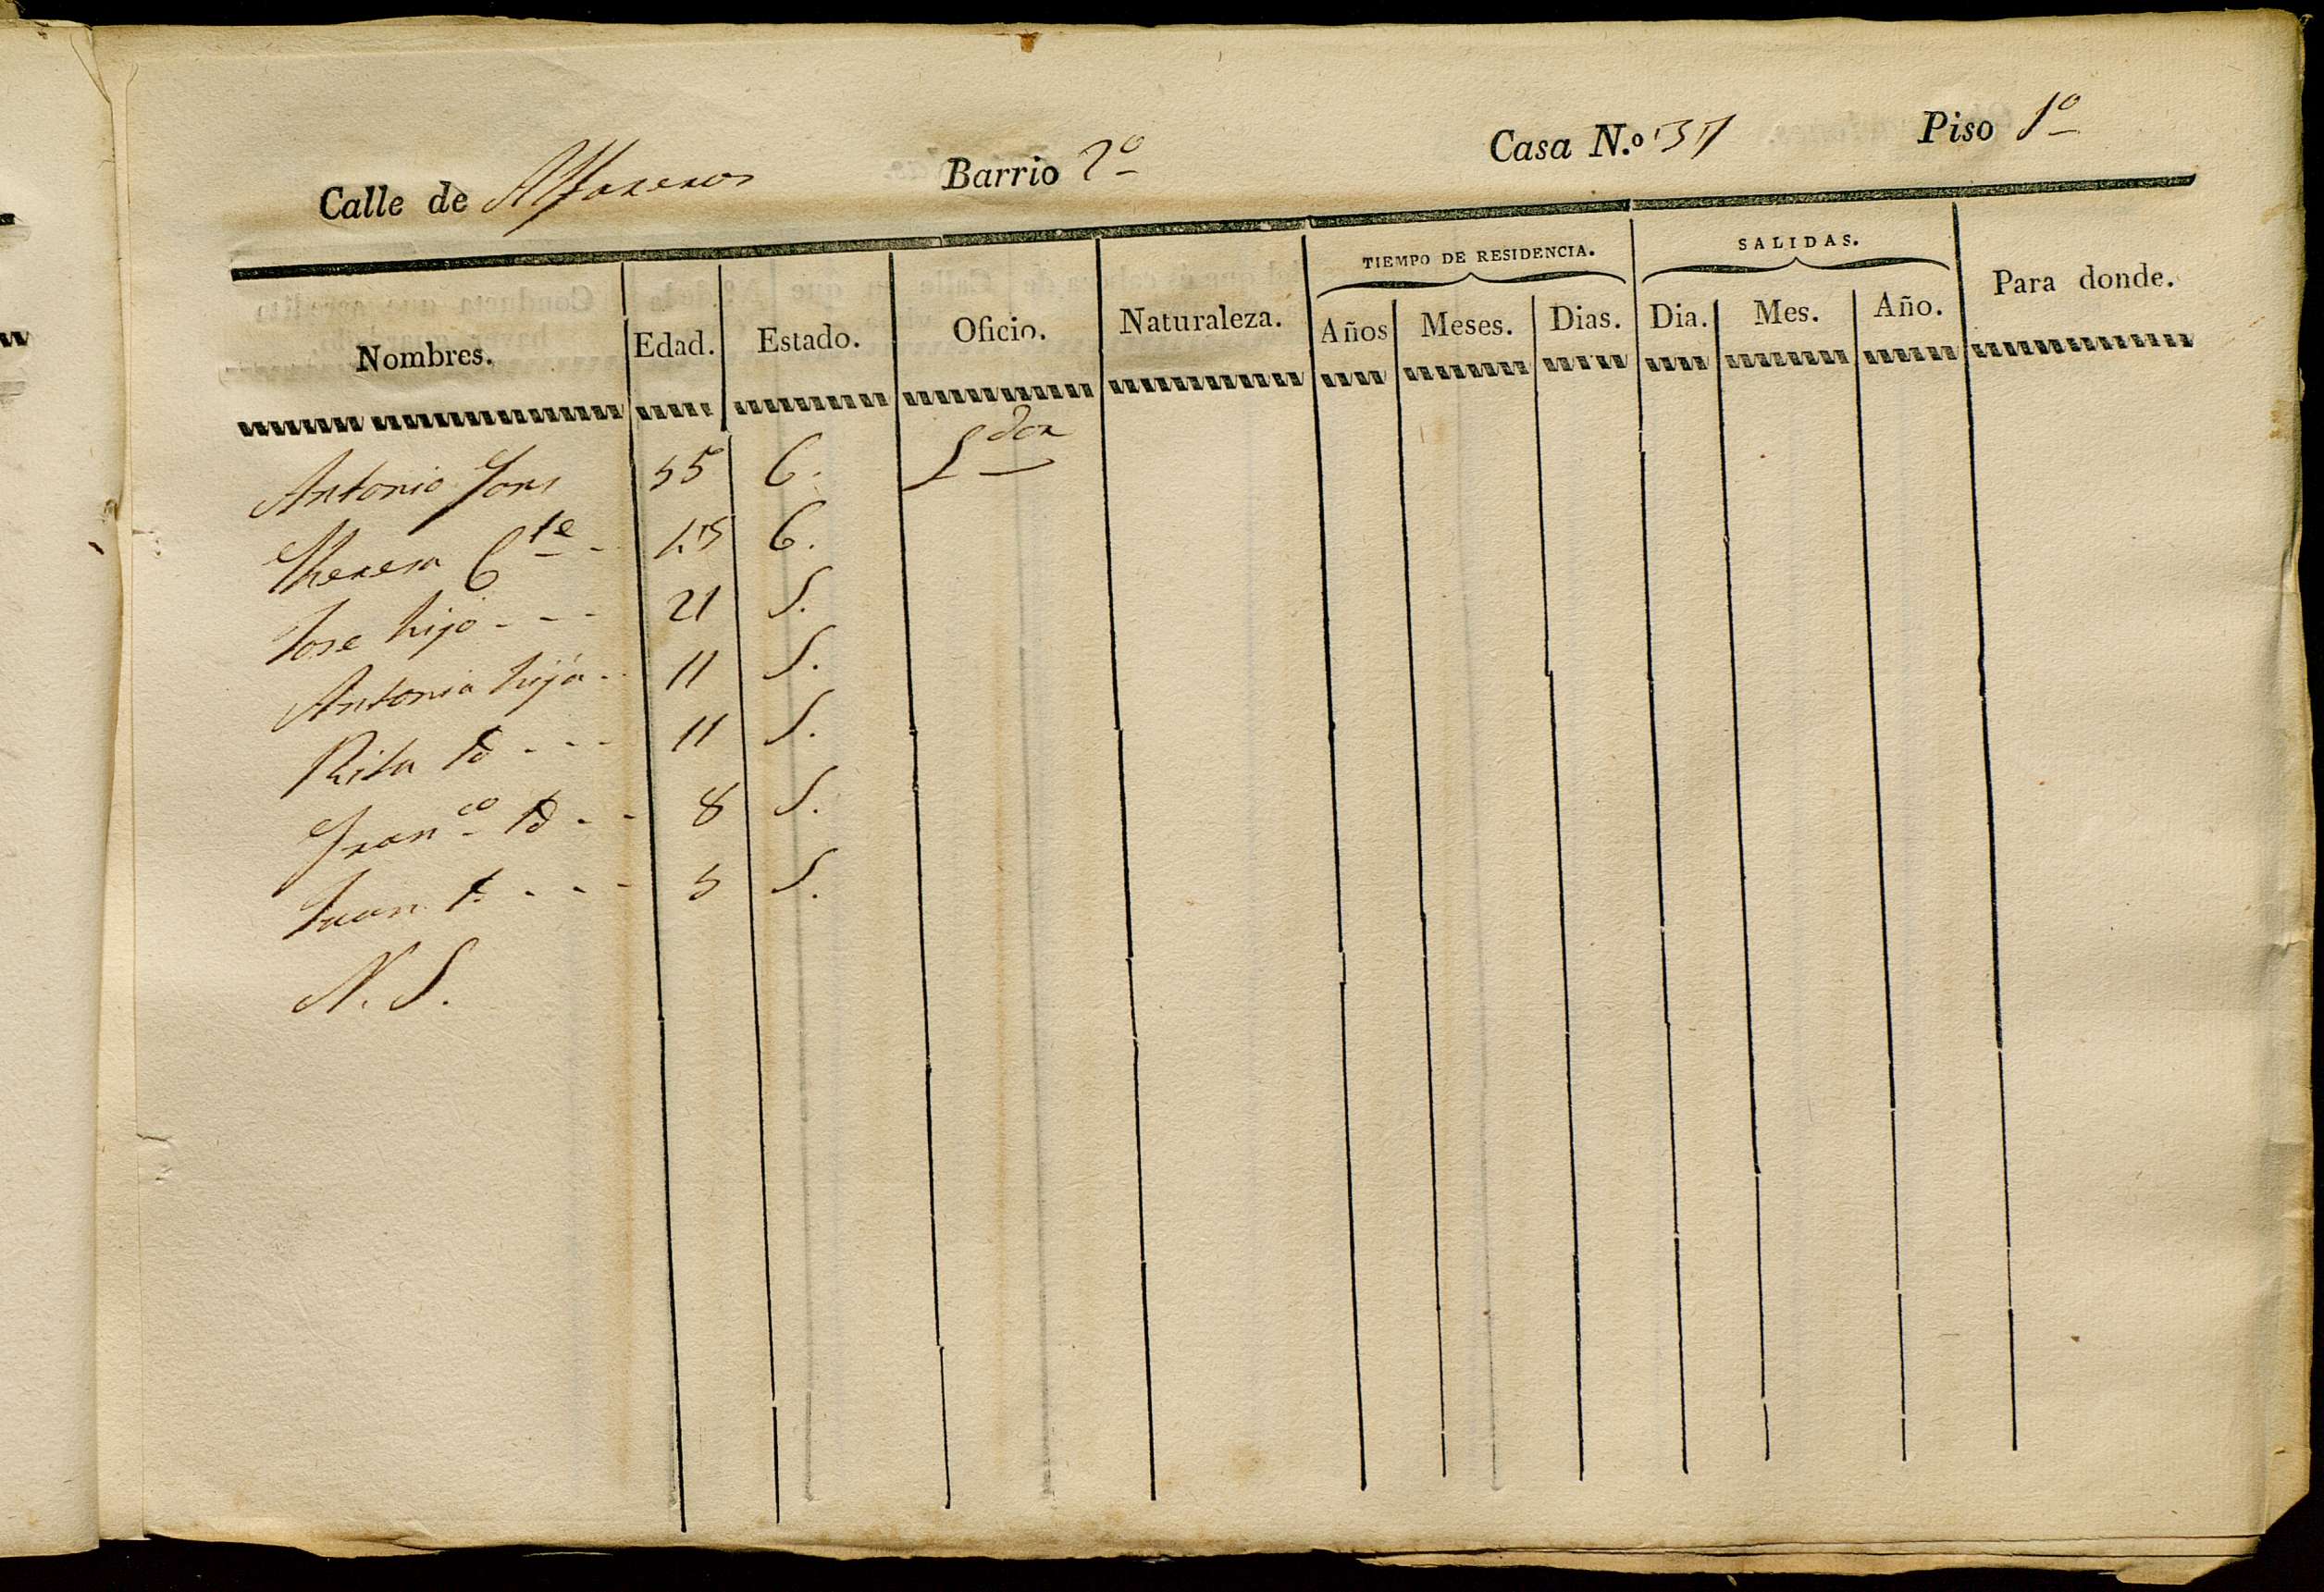 Calle de Alfareros Barrio 2º Casa N.º 37 Piso 1º
TIEMPO DE RESIDENCIA. SALIDAS.
Nombres. Edad. Estado. Oficio. Naturaleza. Años Meses. Dias. Dia. Mes. Año. Para donde.
Antonio 55 C. Ldor
Theresa Cte - 45 C.
Jose hijo - - - 21 S.
Antonia hija - - 11 S.
Rita Id - - - 11 S.
Franco Id - - 8 S.
Juan Id - - - 5 S.
N. S.